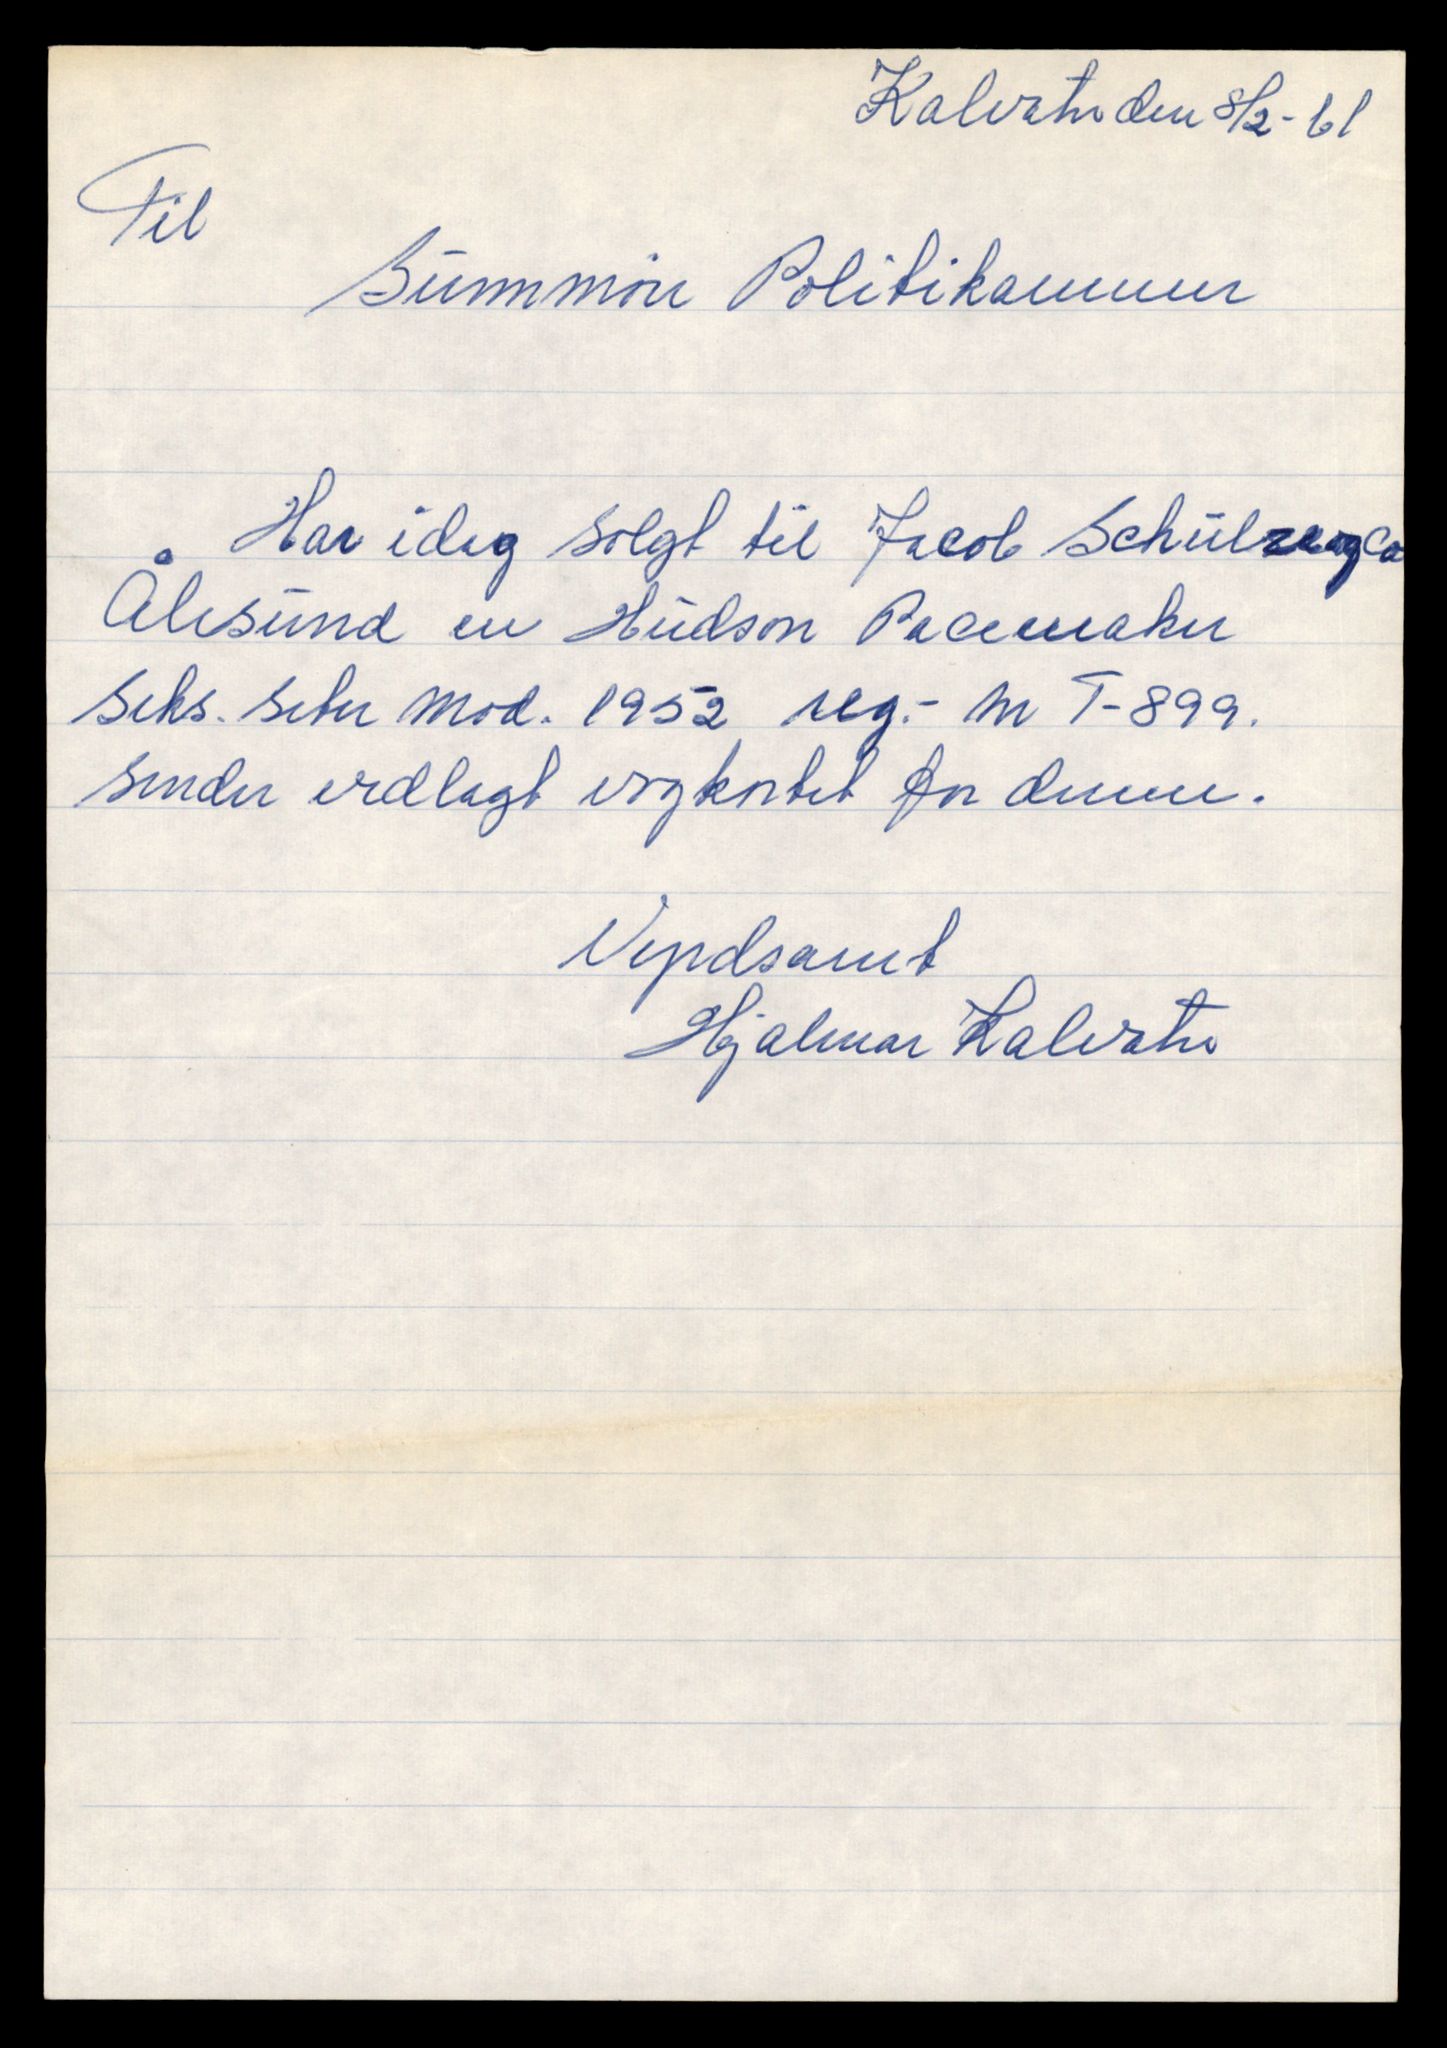 Kalvatn den 8/2-61
Til
Sunnmöre Politikammer
Har idag solgt til Jacob Schulze og Co
Ålesund en Hudson Pacemaker
seks. seter Mod. 1952 reg.- nr T-899.
sender vedlagt vognkortet for denne.
Verdsamt
Hjalmar Kalvatn